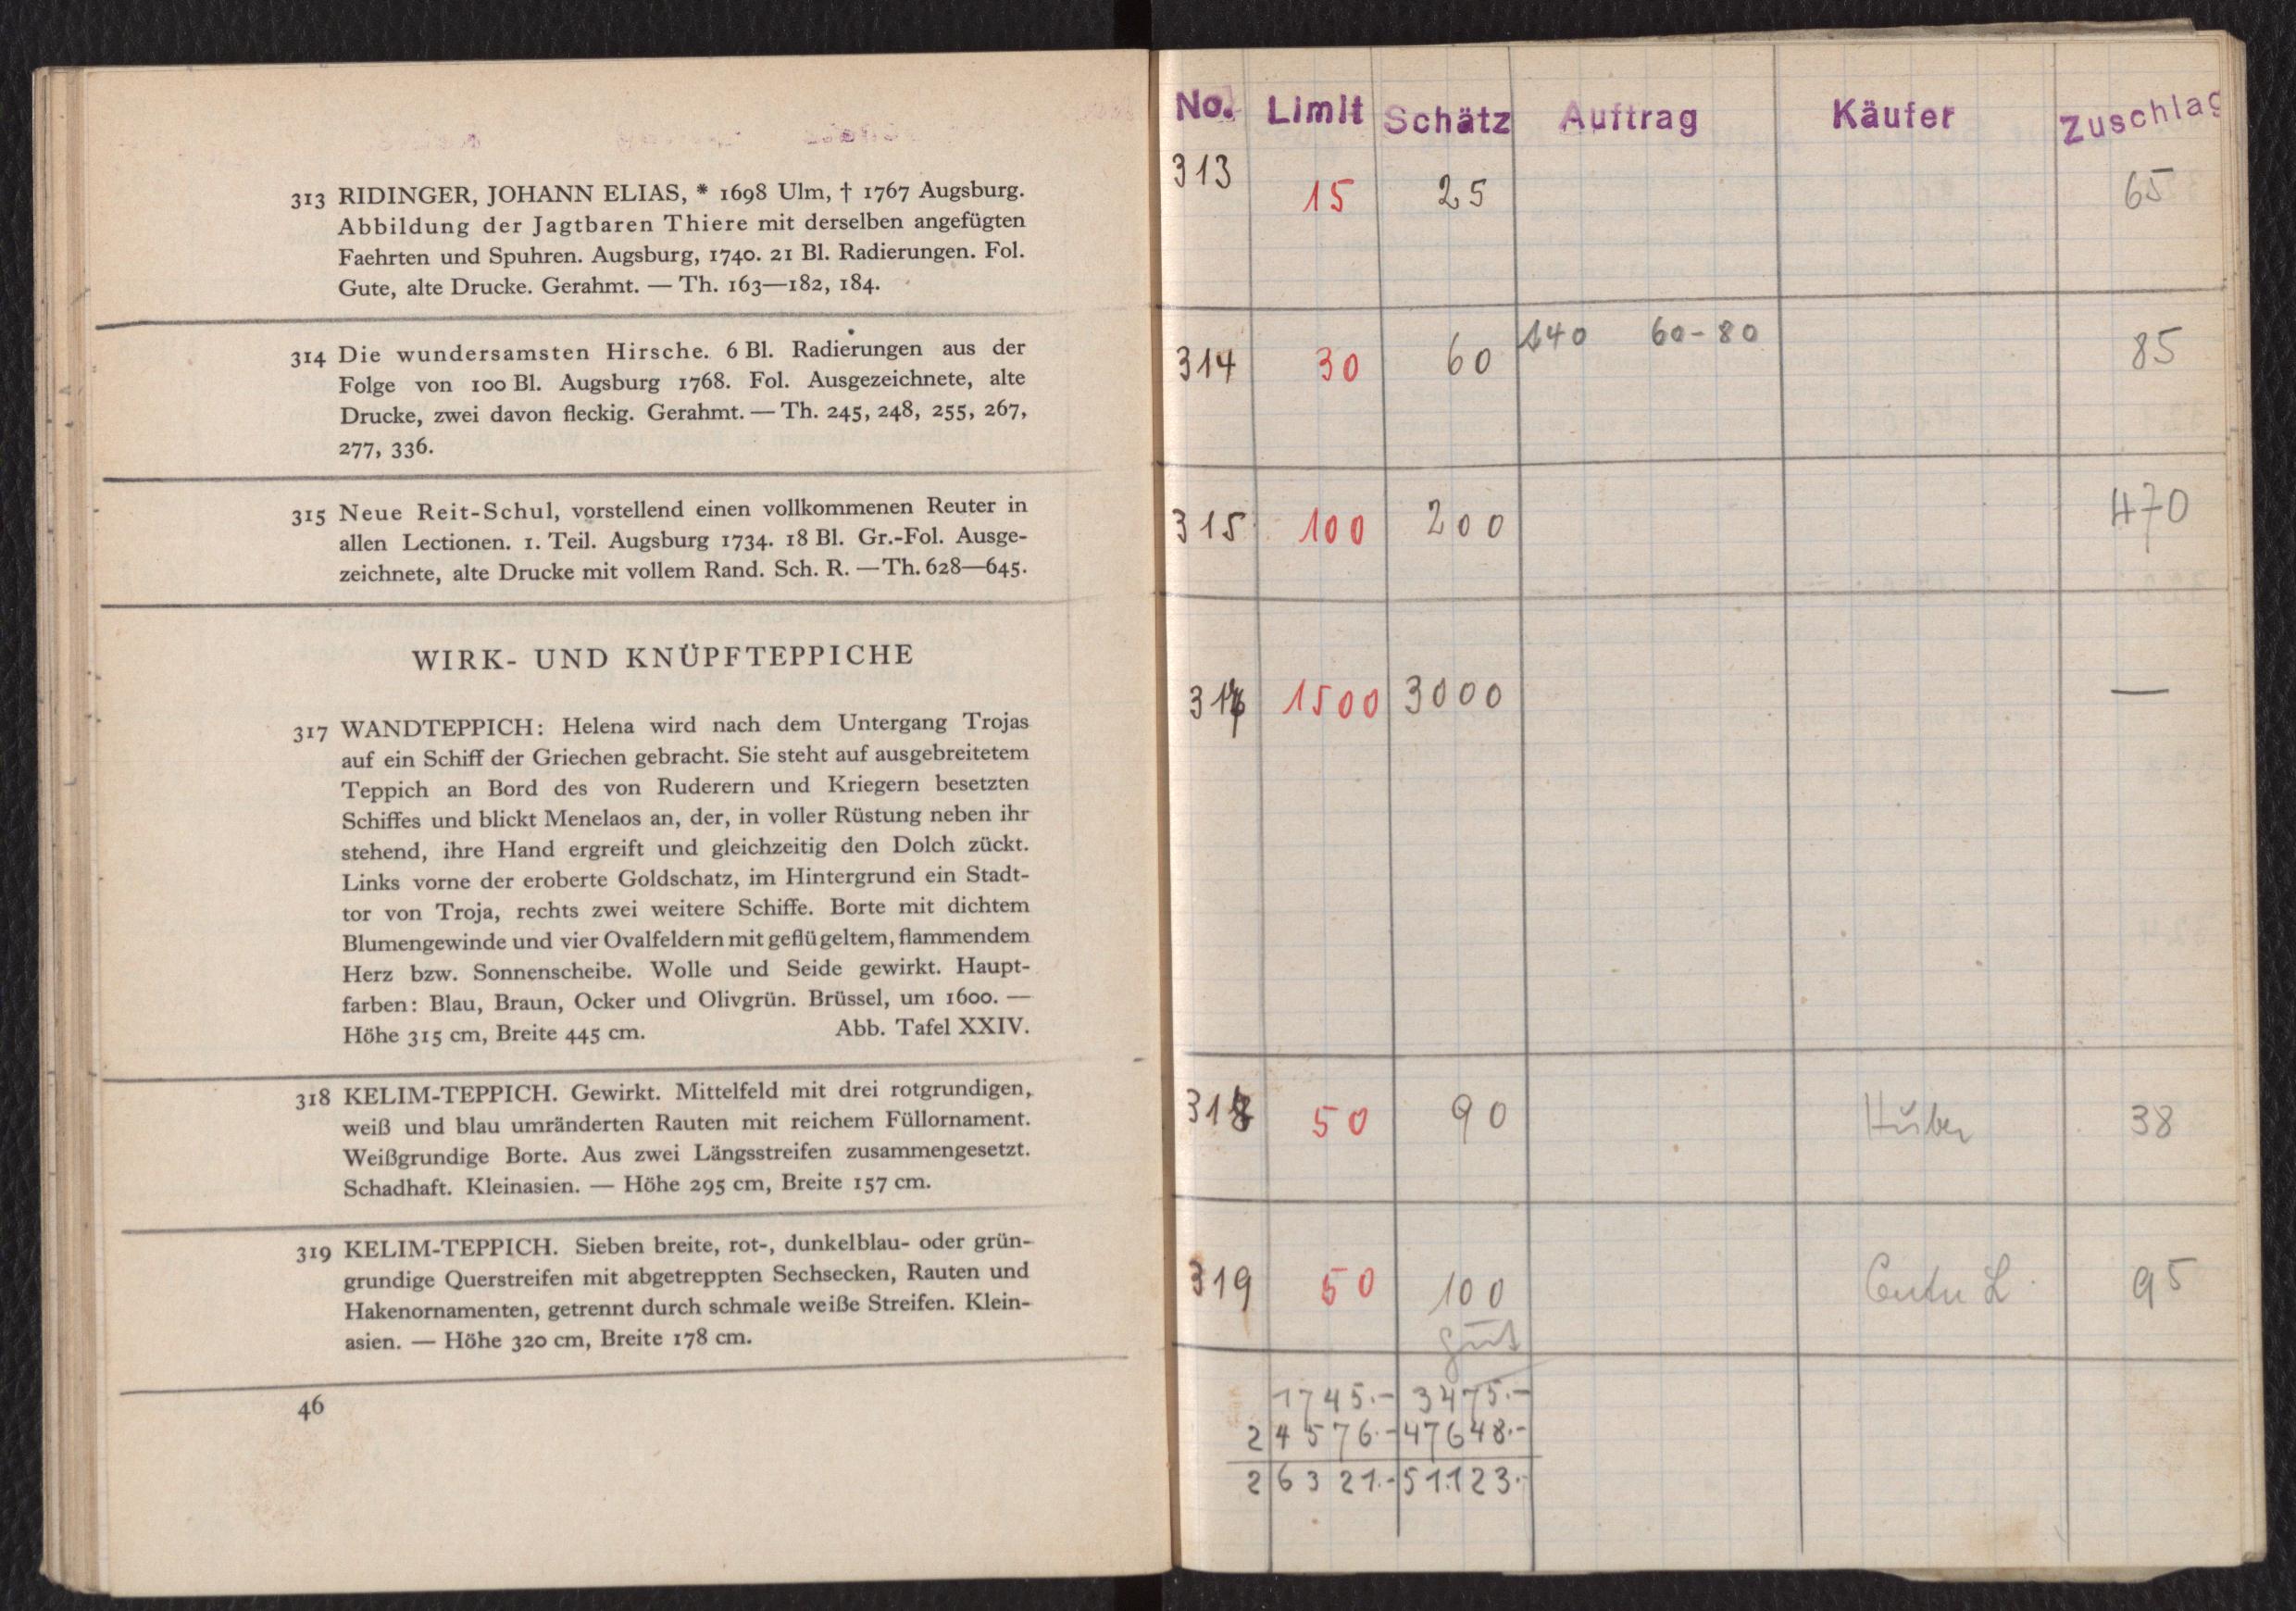 313 RIDINGER, JOHANN ELIAS, * 1698 Ulm, † 1767 Augsburg.
Abbildung der Jagtbaren Thiere mit derselben angefügten
Faehrten und Spuhren. Augsburg, 1740. 21 Bl. Radierungen. Fol.
Gute, alte Drucke. Gerahmt. — Th. 163—182, 184.
314 Die wundersamsten Hirsche. 6 Bl. Radierungen aus der
Folge von 100 Bl. Augsburg 1768. Fol. Ausgezeichnete, alte
Drucke, zwei davon fleckig. Gerahmt. — Th. 245, 248, 255, 267,
277, 336.
315 Neue Reit-Schul, vorstellend einen vollkommenen Reuter in
allen Lectionen. 1. Teil. Augsburg 1734. 18 Bl. Gr.-Fol. Ausge-
zeichnete, alte Drucke mit vollem Rand. Sch. R. — Th. 628—645.
WIRK- UND KNÜPFTEPPICHE
317 WANDTEPPICH: Helena wird nach dem Untergang Trojas
auf ein Schiff der Griechen gebracht. Sie steht auf ausgebreitetem
Teppich an Bord des von Ruderern und Kriegern besetzten
Schiffes und blickt Menelaos an, der, in voller Rüstung neben ihr
stehend, ihre Hand ergreift und gleichzeitig den Dolch zückt.
Links vorne der eroberte Goldschatz, im Hintergrund ein Stadt-
tor von Troja, rechts zwei weitere Schiffe. Borte mit dichtem
Blumengewinde und vier Ovalfeldern mit geflügeltem, flammendem
Herz bzw. Sonnenscheibe. Wolle und Seide gewirkt. Haupt-
farben: Blau, Braun, Ocker und Olivgrün. Brüssel, um 1600. —
Höhe 315 cm, Breite 445 cm. Abb. Tafel XXIV.
318 KELIM-TEPPICH. Gewirkt. Mittelfeld mit drei rotgrundigen,
weiß und blau umränderten Rauten mit reichem Füllornament.
Weißgrundige Borte. Aus zwei Längsstreifen zusammengesetzt.
Schadhaft. Kleinasien. — Höhe 295 cm, Breite 157 cm.
319 KELIM-TEPPICH. Sieben breite, rot-, dunkelblau- oder grün-
grundige Querstreifen mit abgetreppten Sechsecken, Rauten und
Hakenornamenten, getrennt durch schmale weiße Streifen. Klein-
asien. — Höhe 320 cm, Breite 178 cm.
46
No. Limit Schätz Auftrag Käufer Zuschlag
313 15 25 65
314 30 60 140 60-80 85
315 100 200 470
317 1500 3000 —
318 50 90 Huber 38
319 50 100 95
gut
1745.- 3475.-
24576.- 47648.-
26321.- 51.123.-